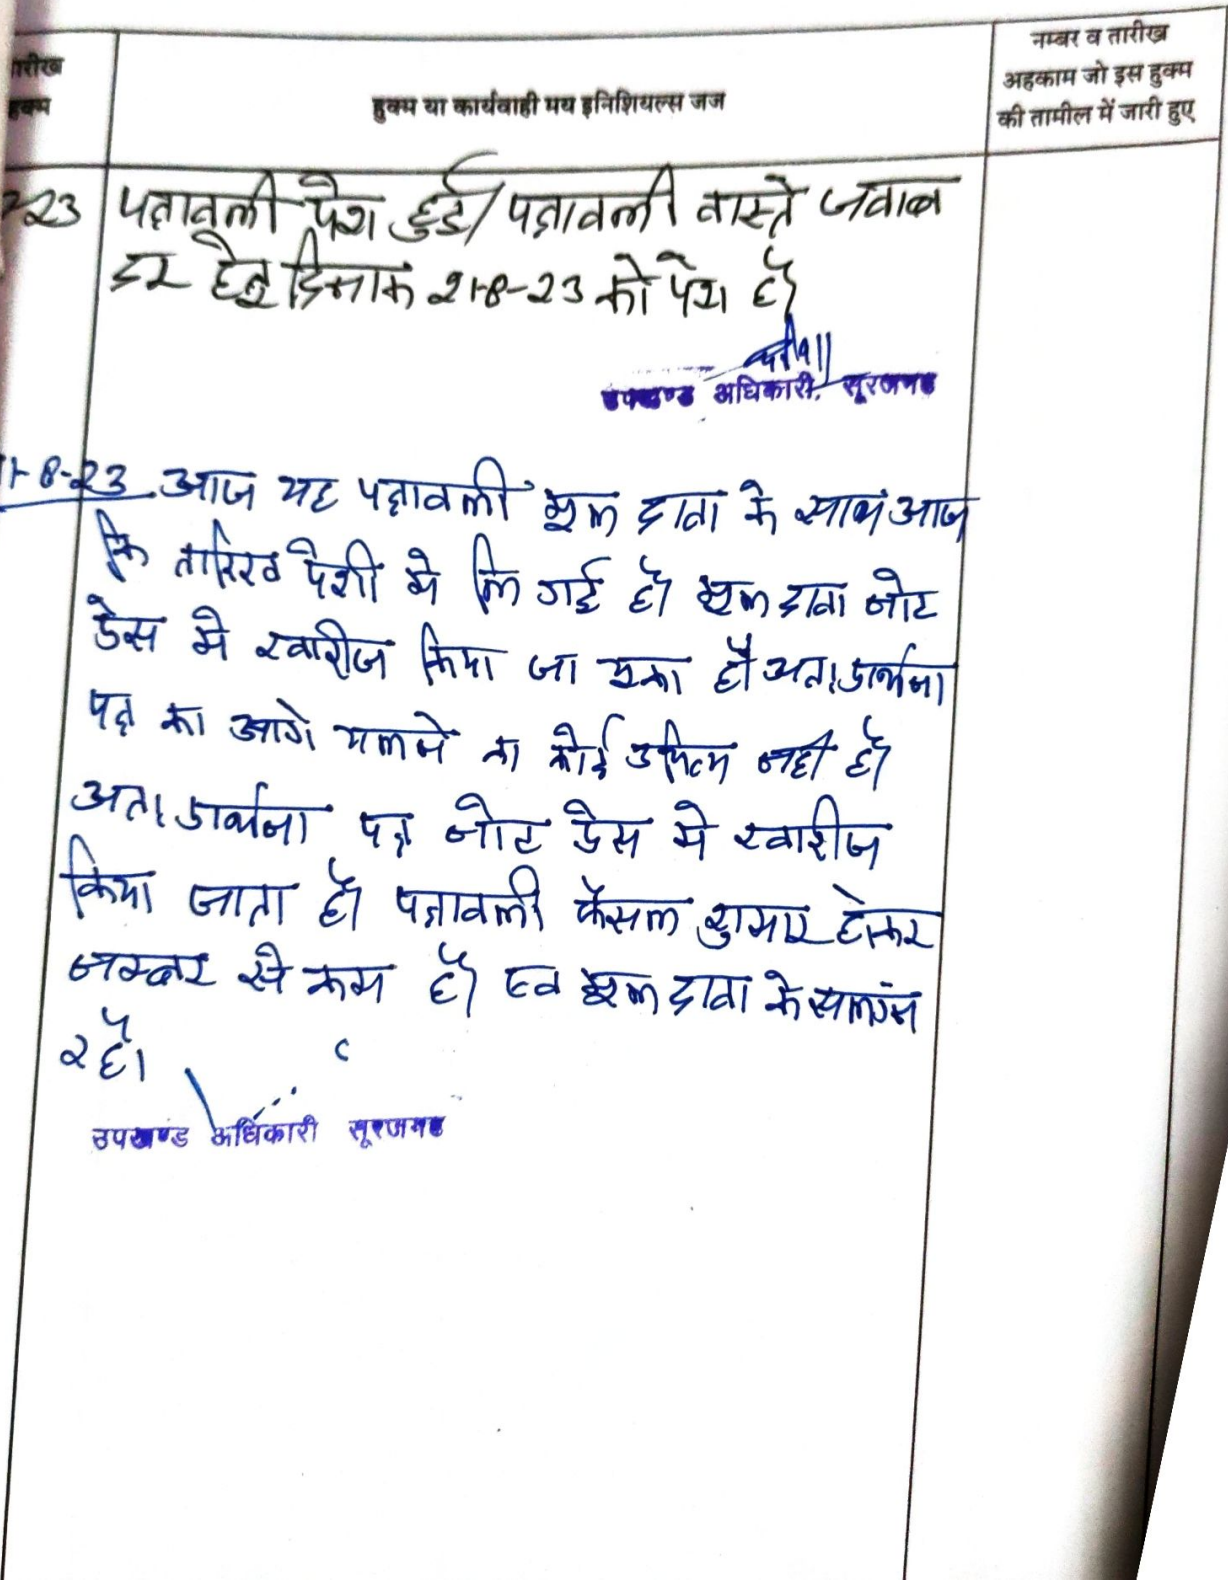 तारीख
हुक्म
हुक्म या कार्यवाही मय इनिशियल्स जज
नम्बर व तारीख
अहकाम जो इस हुक्म
की तामील में जारी हुए
23 पत्रावली पेश हुई/ पत्रावली वास्ते जवाब
हेतु दिनांक 21-8-23 को पेश हो
उपखण्ड अधिकारी, सूरजगढ
1-8-23 आज यह पत्रावली मूल दावा के साथ आज
कि तारिख पेशी मे लि गई है। मूल दावा नोट
प्रेस मे खारीज किया जा चुका है अतः प्रार्थना
पत्र का आगे चलने का कोई उचित्य नही है।
अतः प्रार्थना पत्र नोट प्रेस मे खारीज
किया जाता है। पत्रावली फैसल शुमार होकर
नम्बर से कम हो एव मूल दावा के सलग्न
रहे।
उपखण्ड अधिकारी सूरजगढ